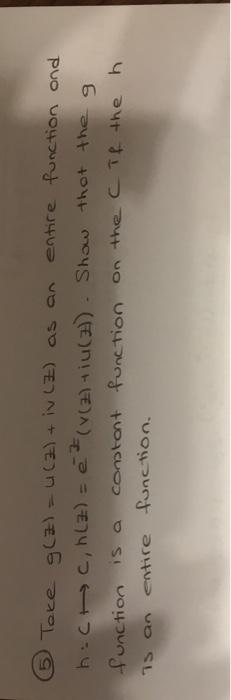 ⑤ Take g(z) = u(z) + iv(z) as an entire function and
h: C ↦ C, h(z) = e^-z (v(z) + iu(z)). Show that the g
function is a constant function on the C if the h
is an entire function.